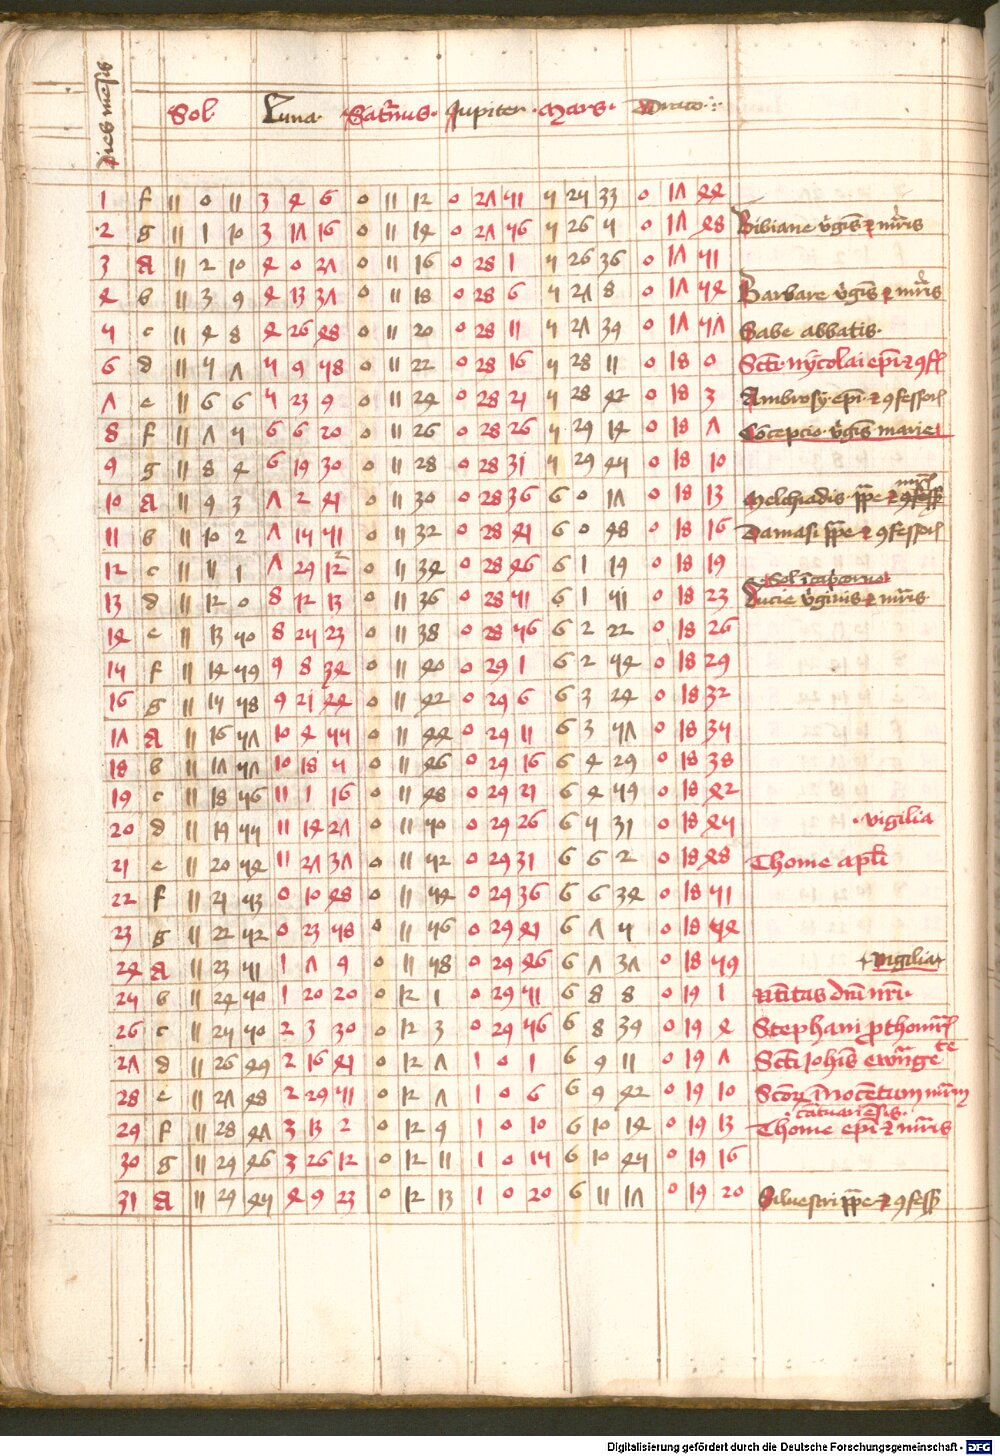 Dies mensis
Sol Luna Satrnus Jupiter Mars Draco
1 f 11 0 11 3 4 6 0 11 12 0 27 51 5 25 33 0 17 44
2 g 11 1 10 3 17 16 0 11 14 0 27 56 5 26 5 0 17 48 Bibiane vgis et mris
3 A 11 2 10 4 0 27 0 11 16 0 28 1 5 26 36 0 17 51
4 b 11 3 9 4 13 37 0 11 18 0 28 6 5 27 8 0 17 54 Barbare vgis et mris
5 c 11 4 8 4 26 48 0 11 20 0 28 11 5 27 39 0 17 57 Sabe abbatis
6 d 11 5 7 5 9 58 0 11 22 0 28 16 5 28 11 0 18 0 Scti nycolai epi et 9fs
7 e 11 6 6 5 23 9 0 11 24 0 28 21 5 28 42 0 18 3 Ambrosy epi et 9fessor
8 f 11 7 5 6 6 20 0 11 26 0 28 26 5 29 14 0 18 7 Cocepcio vgis marie
9 g 11 8 4 6 19 30 0 11 28 0 28 31 5 29 45 0 18 10
10 A 11 9 3 7 2 41 0 11 30 0 28 36 6 0 17 0 18 13 Melchiadis ppe et mris
11 b 11 10 2 7 15 51 0 11 32 0 28 41 6 0 48 0 18 16 Damasi ppe et 9fessor
12 c 11 11 1 7 29 12 0 11 34 0 28 46 6 1 19 0 18 19
Sol i capcorno
13 d 11 12 0 8 12 13 0 11 36 0 28 51 6 1 51 0 18 23 Lucie vginis et mris
14 e 11 13 50 8 25 23 0 11 38 0 28 56 6 2 22 0 18 26
15 f 11 14 59 9 8 34 0 11 40 0 29 1 6 2 54 0 18 29
16 g 11 15 58 9 21 44 0 11 42 0 29 6 6 3 24 0 18 32
17 A 11 16 57 10 4 55 0 11 44 0 29 11 6 3 57 0 18 35
18 b 11 17 57 10 18 5 0 11 46 0 29 16 6 4 29 0 18 38
19 c 11 18 56 11 1 16 0 11 48 0 29 21 6 4 59 0 18 42
20 d 11 19 55 11 14 27 0 11 50 0 29 26 6 5 31 0 18 45 vigilia
21 e 11 20 54 11 27 37 0 11 52 0 29 31 6 6 2 0 18 48 Thome apli
22 f 11 21 53 0 10 48 0 11 54 0 29 36 6 6 34 0 18 51
23 g 11 22 52 0 23 58 0 11 56 0 29 41 6 7 5 0 18 54
24 A 11 23 51 1 7 9 0 11 58 0 29 46 6 7 37 0 18 59 vigilia
25 b 11 24 50 1 20 20 0 12 1 0 29 51 6 8 8 0 19 1 Ntitas dni nri
26 c 11 25 50 2 3 30 0 12 3 0 29 56 6 8 39 0 19 4 Stephani pthomr
27 d 11 26 49 2 16 41 0 12 7 1 0 1 6 9 11 0 19 7 Scti Johis ewangete
28 e 11 27 48 2 29 51 0 12 7 1 0 6 6 9 42 0 19 10 Scor Inocentum mrm
cantuariesis
29 f 11 28 47 3 13 2 0 12 9 1 0 10 6 10 14 0 19 13 Thome epi et mris
30 g 11 29 46 3 26 12 0 12 11 1 0 15 6 10 45 0 19 16
31 A 11 29 45 4 9 23 0 12 13 1 0 20 6 11 17 0 19 20 Siluestri ppe et 9fess
Digitalisierung gefördert durch die Deutsche Forschungsgemeinschaft - DFG